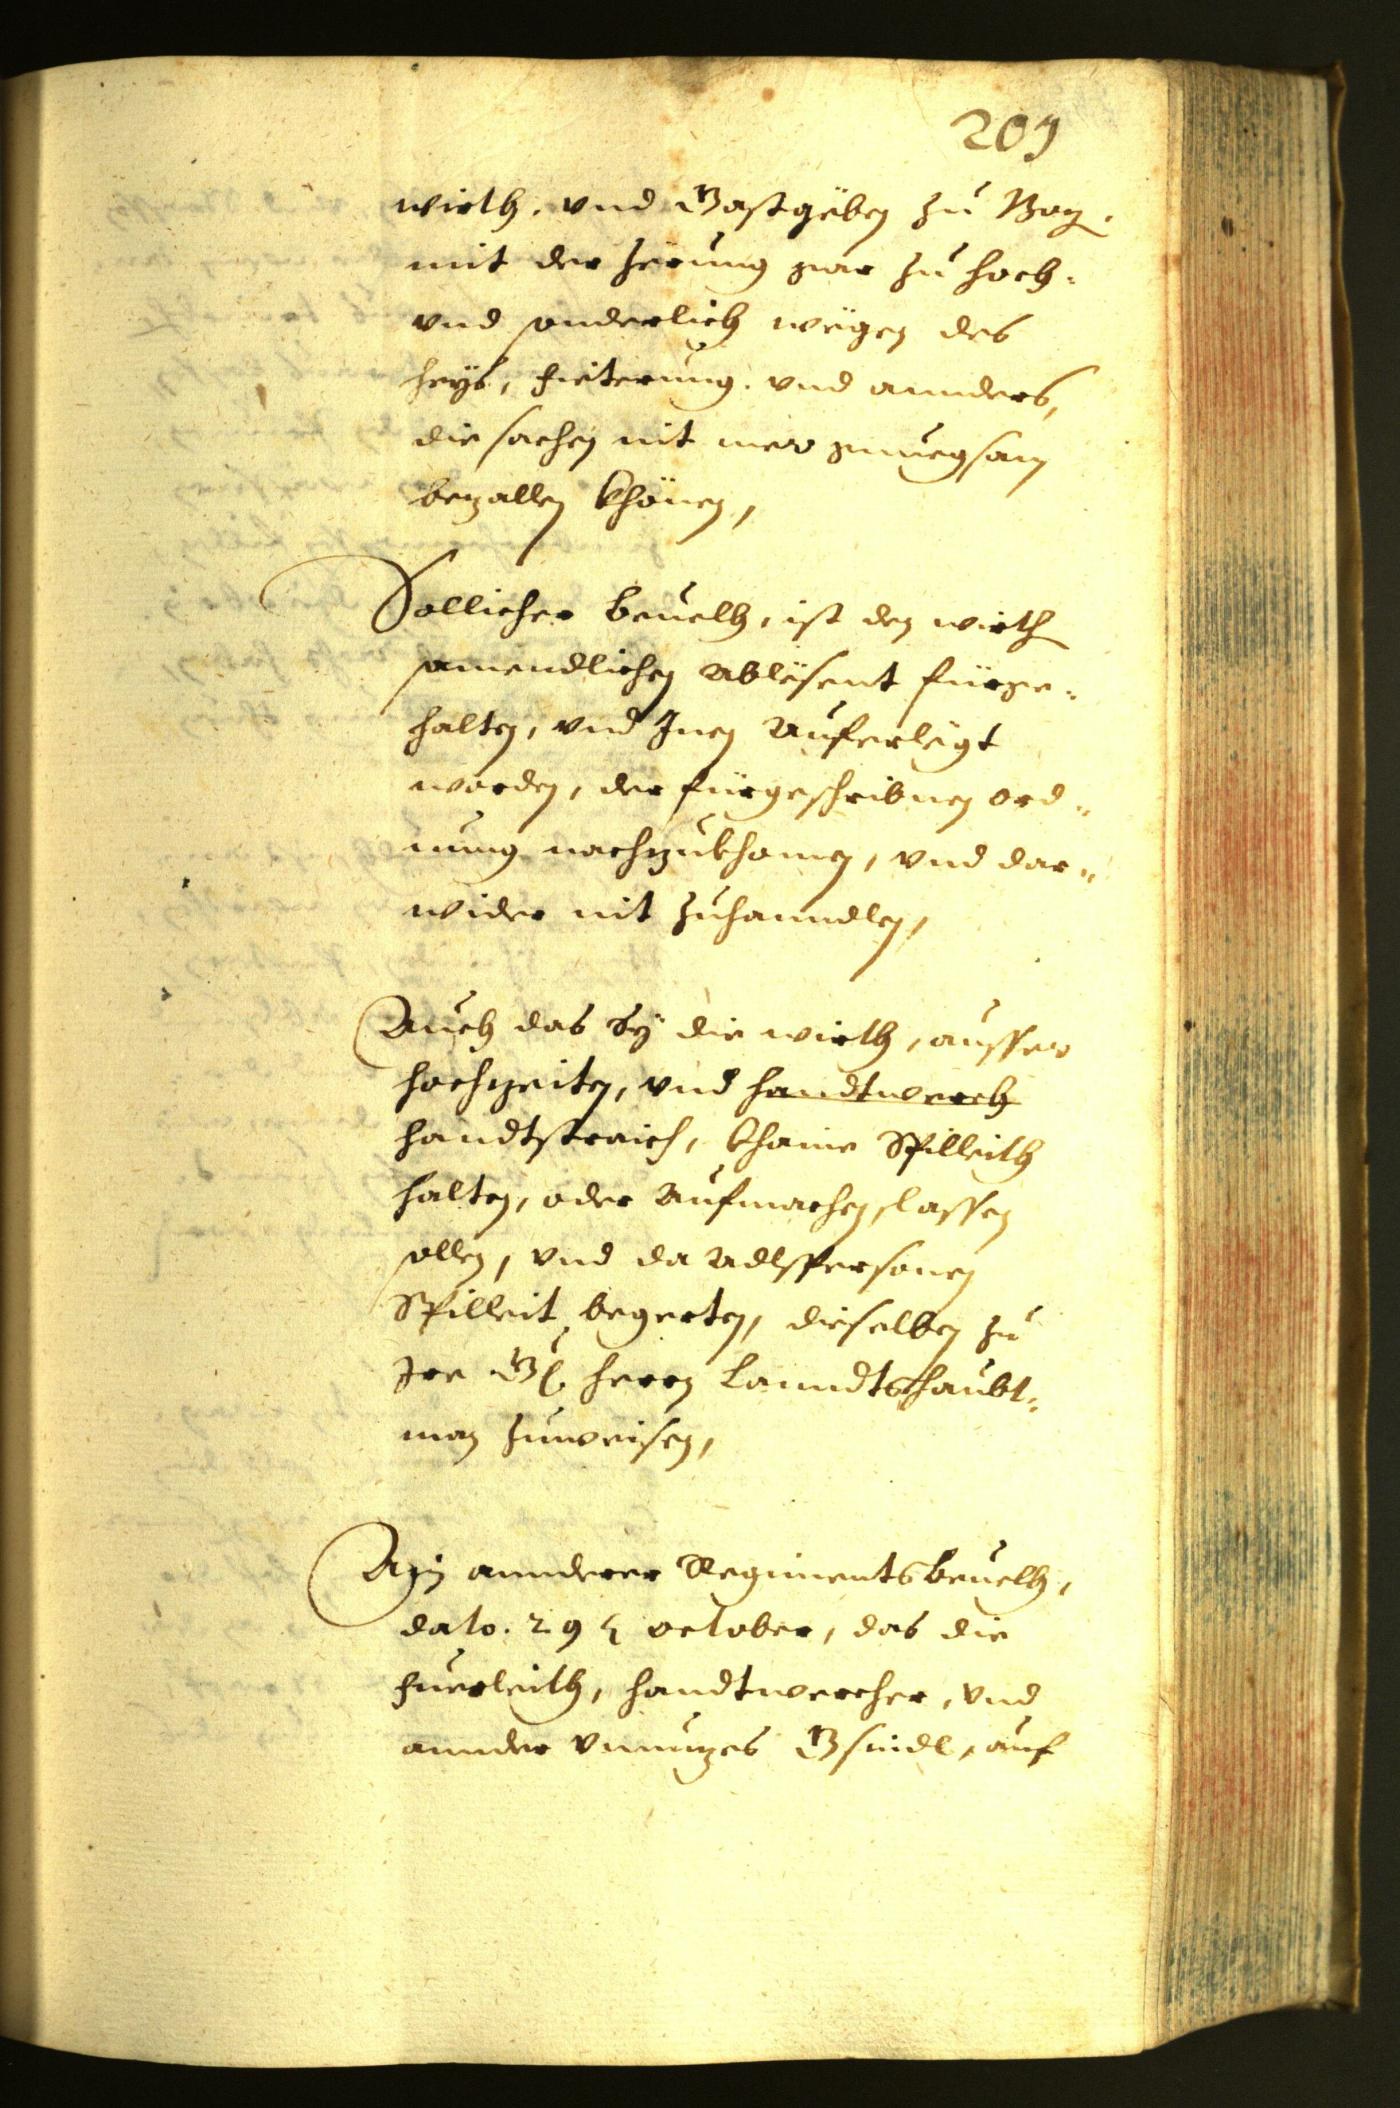 209
wirth. vnd Gastgëben zu Boz.
mit der Zerung gar zu hoch.
vnd sonderlich wëgen des
heÿs, fieterung. vnd annders,
die sachen nit mer gnuegsam
bezallen khönen,
Sollicher beuelh, ist den wirth
samendlichen Ablësent fürge„
halten, vnd Inen Auferlëgt
worden, der fürgeschribnen ord„
nung nachzukhomen, vnd dar„
wider nit zuhanndlen,
Auch das Sÿ die wirth, ausser
hochzeiten, vnd handtwerch
handtstraich, khaine Spilleith
halten, oder Aufmachen lassen
sollen, vnd da Adlspersonen
Spilleit begerten, dieselben zu
Ire G. herrn Lanndtshaubt„
man zuweisen,
Ain annderer Regimentsbeuelh,
dato. 29 october, das die
fuerleith, handtwercher, vnd
annder vnnuzes Gsindl, auf